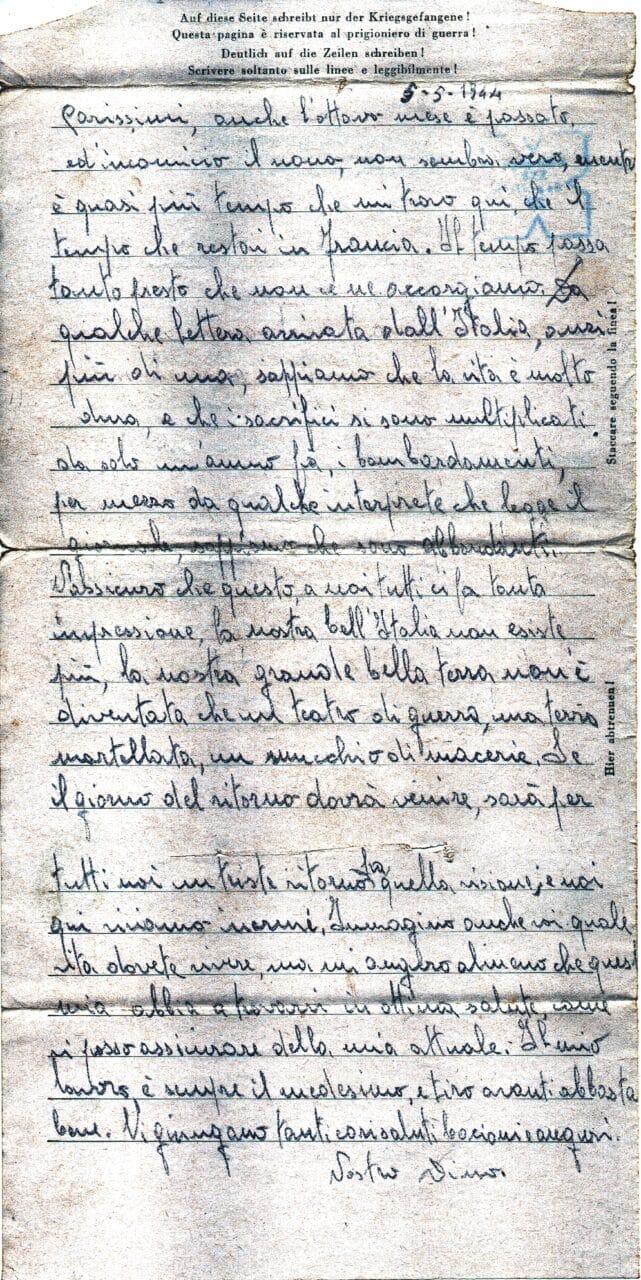 Auf diese Seite schreibt nur der Kriegsgefangene!
Questa pagina è riservata al prigioniero di guerra!
Deutlich auf die Zeilen schreiben!
Scrivere soltanto sulle linee e leggibilmente!
5-5-1944
Carissimi, anche l'ottavo mese è passato,
ed'incomincio il nono, non sembra vero,
è quasi più tempo che mi trovo qui, che il
tempo che restai in Francia. Il tempo passa
tanto presto che non ce ne accorgiamo. Da
qualche lettera arrivata dall'Italia, anzi
più di una, sappiamo che la vita è molto
dura, e che i sacrifici si sono multiplicati
da solo un'anno fà, i bombardamenti,
per mezzo da qualche interprete che legge il
giornale, sappiamo che sono abbondanti.
V'assicuro che questo, a noi tutti ci fa tanta
impressione, la nostra bell'Italia non esiste
più, la nostra grande bella terra non è
diventata che un teatro di guerra, una terra
martellata, un mucchio di macerie. Se
il giorno del ritorno dovrà venire, sarà per
tutti noi un triste ritorno fra quella visione, e noi
qui viviamo inermi. Immagino anche voi quale
vita dovete vivere, ma mi auguro almeno che
mia abbia a trovarvi in ottima salute, come
vi posso assicurare della mia attuale. Il mio
lavoro, è sempre il medesimo, e tiro avanti
bene. Vi giungano tanti cari saluti bacioni e auguri.
Vostro Dino.
Staccare seguendo la linea!
Hier abtrennen!